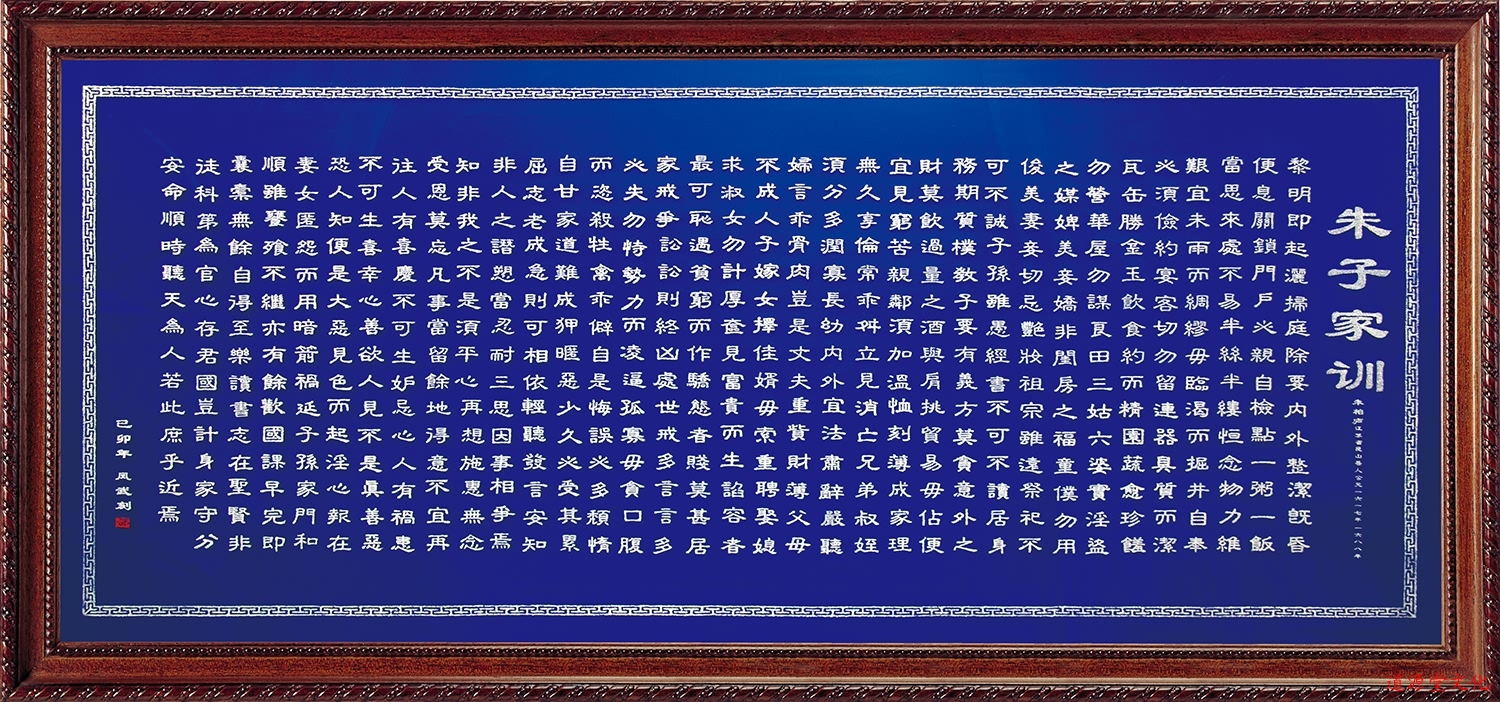 朱子家训
朱柏庐江苏省昆山县人公元一六一七年一六八八年
黎明即起灑掃庭除要内外整潔既昏
便息關鎖門戶必親自檢點一粥一飯
當思來處不易半絲半縷恒念物力維
艱宜未雨而綢繆毋臨渴而掘井自奉
必須儉約宴客切勿留連器具質而潔
瓦缶勝金玉飲食約而精園蔬愈珍饈
勿營華屋勿謀良田三姑六婆實淫盜
之媒婢美妾嬌非閨房之福童僕勿用
俊美妻妾切忌艷妝祖宗雖遠祭祀不
可不誠子孫雖愚經書不可不讀居身
務期質樸教子要有義方莫貪意外之
財莫飲過量之酒與肩挑貿易毋佔便
宜見窮苦親鄰須加溫恤刻薄成家理
無久享倫常乖舛立見消亡兄弟叔姪
須分多潤寡長幼内外宜法肅辭嚴聽
婦言乖骨肉豈是丈夫重貲財薄父母
不成人子嫁女擇佳婿毋索重聘娶媳
求淑女勿計厚奩見富貴而生諂容者
最可恥遇貧窮而作驕態者賤莫甚居
家戒爭訟訟則終凶處世戒多言言多
必失勿恃勢力而凌逼孤寡毋貪口腹
而恣殺牲禽乖僻自是悔誤必多頹惰
自甘家道難成狎暱惡少久必受其累
屈志老成急則可相依輕聽發言安知
非人之譖愬當忍耐三思因事相爭焉
知非我之不是須平心再想施惠無念
受恩莫忘凡事當留餘地得意不宜再
往人有喜慶不可生妒忌心人有禍患
不可生喜幸心善欲人見不是真善惡
恐人知便是大惡見色而起淫心報在
妻女匿怨而用暗箭禍延子孫家門和
順雖饔飧不繼亦有餘歡國課早完即
囊橐無餘自得至樂讀書志在聖賢非
徒科第為官心存君國豈計身家守分
安命順時聽天為人若此庶乎近焉
己卯年 風武刻
道源堂文化